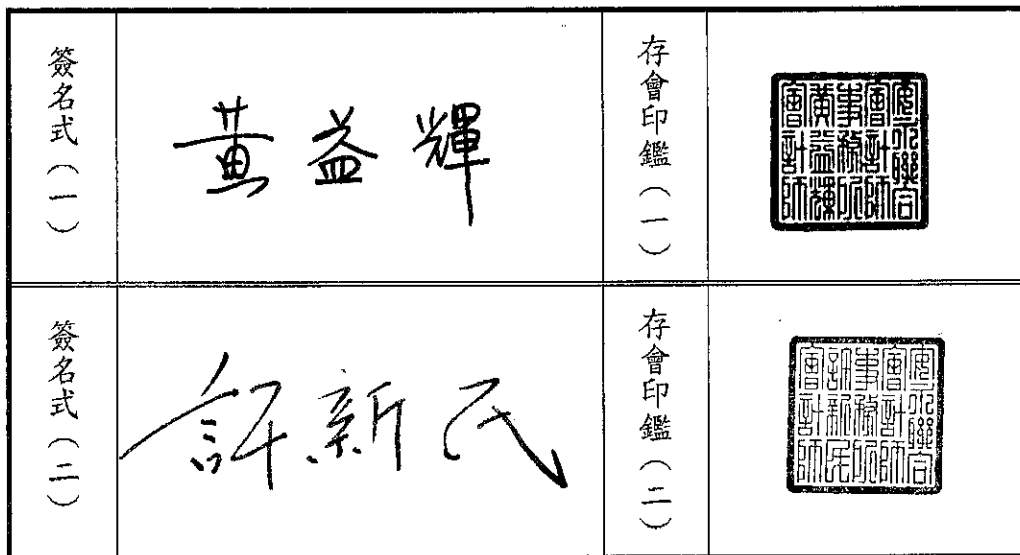 簽名式（一）
黃益輝
存會印鑑（一）
安永聯合
會計師
事務所
黃益輝
會計師
簽名式（二）
許新民
存會印鑑（二）
安永聯合
會計師
事務所
許新民
會計師